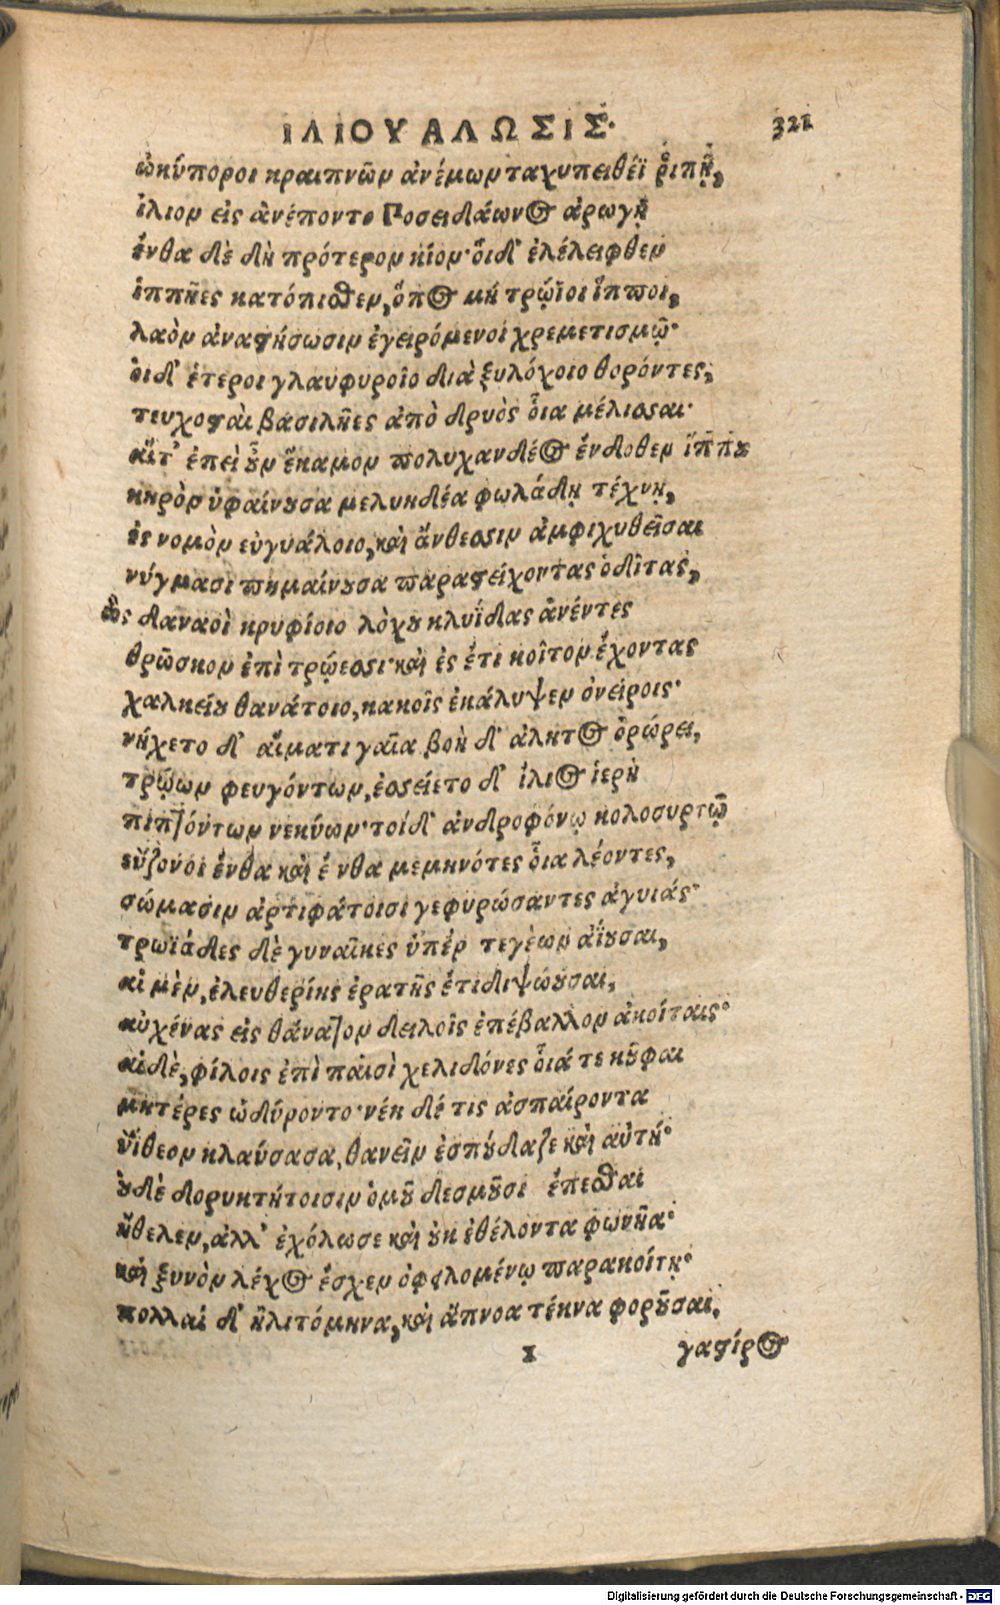 ΙΛΙΟΥ ΑΛΩΣΙΣ. 321
ὠκύποροι κραιπνῶν ἀνέμων ταχυπειθέϊ ῥιπῇ,
ἴλιον εἰς ἀνέποντο Ποσειδάωνος ἀρωγῇ
ἔνθα δὲ δὴ πρότερον κίον· οἵδ' ἐλέλειφθεν
ἱππῆες κατόπισθεν, ὅπως μὴ τρῴϊοι ἵπποι,
λαὸν ἀναστήσωσιν ἐγειρόμενοι χρεμετισμῷ·
οἱ δ' ἕτεροι γλαυφυροῖο διὰ ξυλόχοιο θορόντες,
τευχοσταὶ βασιλῆες ἀπὸ δρυὸς οἷα μέλισσαι·
αἵτ' ἐπεὶ οὖν ἔκαμον πολυχανδέος ἔνδοθεν ἵππου
κηρὸν ὑφαίνουσα μελυηδέα φωλάδῃ τέχνῃ,
ἐς νομὸν εὐγυάλοιο, καὶ ἄνθεσσιν ἀμφιχυθεῖσαι
νύγμασι πημαίνουσα παραστείχοντας ὁδίτας,
ὣς δαναοὶ κρυφίοιο λόχου κλυΐδας ἀνέντες
θρῶσκον ἐπὶ τρώεσσι· καὶ ἐς ἔτι κοῖτον ἔχοντας
χαλκείου θανάτοιο, κακοῖς ἐκάλυψεν ὀνείροις·
νήχετο δ' αἵματι γαῖα βοὴ δ' ἀλητος ὀρώρει,
τρώων φευγόντων, ἐσσείετο δ' ἴλιος ἱερὴ
πιπτόντων νεκύων· τοίδ' ἀνδροφόνῳ κολοσυρτῷ
εὔζονοι ἔνθα καὶ ἔνθα μεμηνότες οἷα λέοντες,
σώμασιν ἀρτιφάτοισι γεφυρώσαντες ἀγυιάς·
τρωϊάδες δὲ γυναῖκες ὑπὲρ τεγέων ἀΐουσαι,
αἱ μὲν, ἐλευθερίης ἐρατῆς ἔτι διψώουσαι,
αὐχένας εἰς θάνατον δειλοῖς ἐπέβαλλον ἀκοίταις·
αἱ δὲ, φίλοις ἐπὶ παισὶ χελιδόνες οἷά τε κοῦφαι
μητέρες ὠδύροντο· νέη δέ τις ἀσπαίροντα
ἠΐθεον κλαύσασα, θανεῖν ἐσπούδαζε καὶ αὐτή·
οὐδὲ δορυκτήτοισιν ὁμοῦ δεσμοῦσι ἕπεσθαι
ἤθελεν, ἀλλ' ἐχόλωσε καὶ οὐκ ἐθέλοντα φωνῆα·
καὶ ξυνὸν λέχος ἔσχεν ὀφειλομένῳ παρακοίτῃ·
πολλαὶ δ' ἠλιτόμηνα, καὶ ἄπνοα τέκνα φοροῦσαι,
x γαστέρος
Digitalisierung gefördert durch die Deutsche Forschungsgemeinschaft - DFG